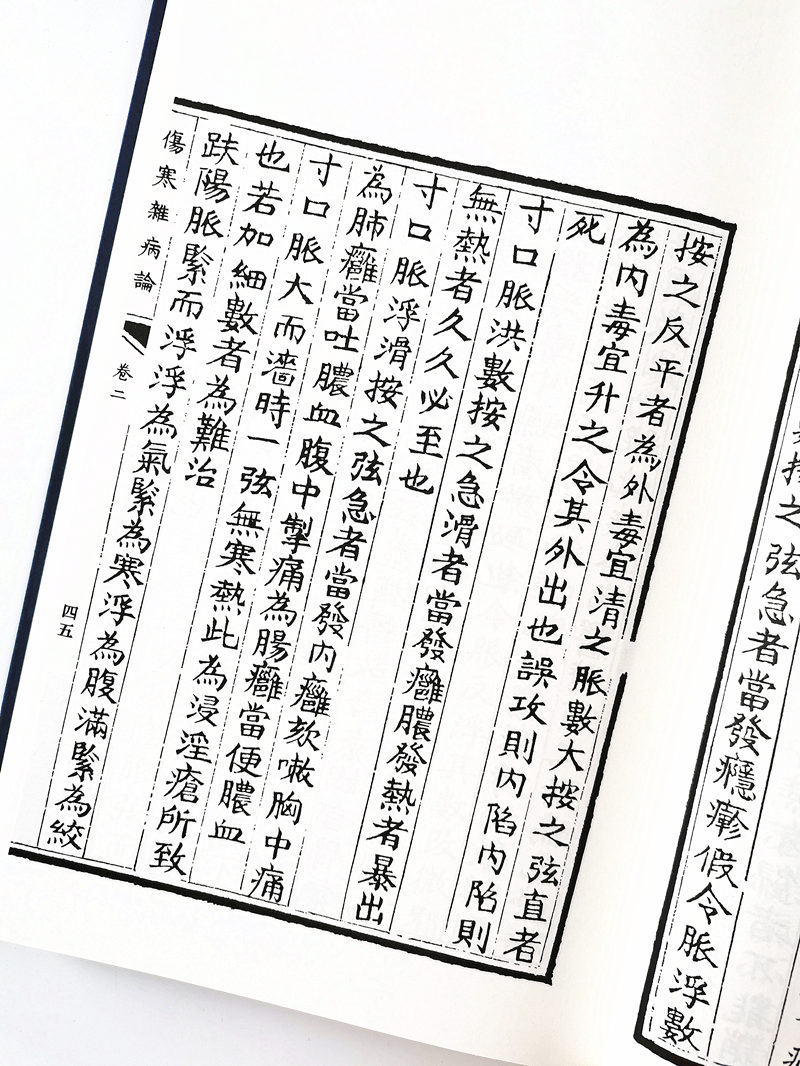 按之弦急者當發癮瘮假令脈浮數
按之反平者為外毒宜清之脈數大按之弦直者
為內毒宜升之令其外出也誤攻則內陷內陷則
死
寸口脈洪數按之急滑者當發癰膿發熱者暴出
無熱者久久必至也
寸口脈浮滑按之弦急者當發內癰欬嗽胸中痛
為肺癰當吐膿血腹中掣痛為腸癰當便膿血
寸口脈大而濇時一弦無寒熱此為浸淫瘡所致
也若加細數者為難治
趺陽脈緊而浮浮為氣緊為寒浮為腹滿緊為絞
傷寒雜病論
卷二
四五